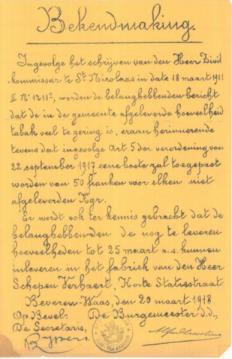 Bekendmaking.
Ingevolge het schrijven van den Heer Zivil
kommissar te St Nicolaas in date 18 maart 1918
II N° 1211², worden de belanghebbenden bericht
dat de in de gemeente afgeleverde hoeveelheid
tabak veel te gering is, eraan herinnerende
tevens dat ingevolge Art 5 der verordening van
22 september 1917 eene boete zal toegepast
worden van 50 franken voor elken niet
afgeleverden Kgr.
Er wordt ook ter kennis gebracht dat de
belanghebbenden de nog te leveren
hoeveelheden tot 25 maart a.s. kunnen
inleveren in het fabriek van den Heer
Schepen Verhaert, Korte Statiestraat
Beveren-Waas, den 20 maart 1918
Op Bevel: De Burgemeester d.d.,
De Secretaris,